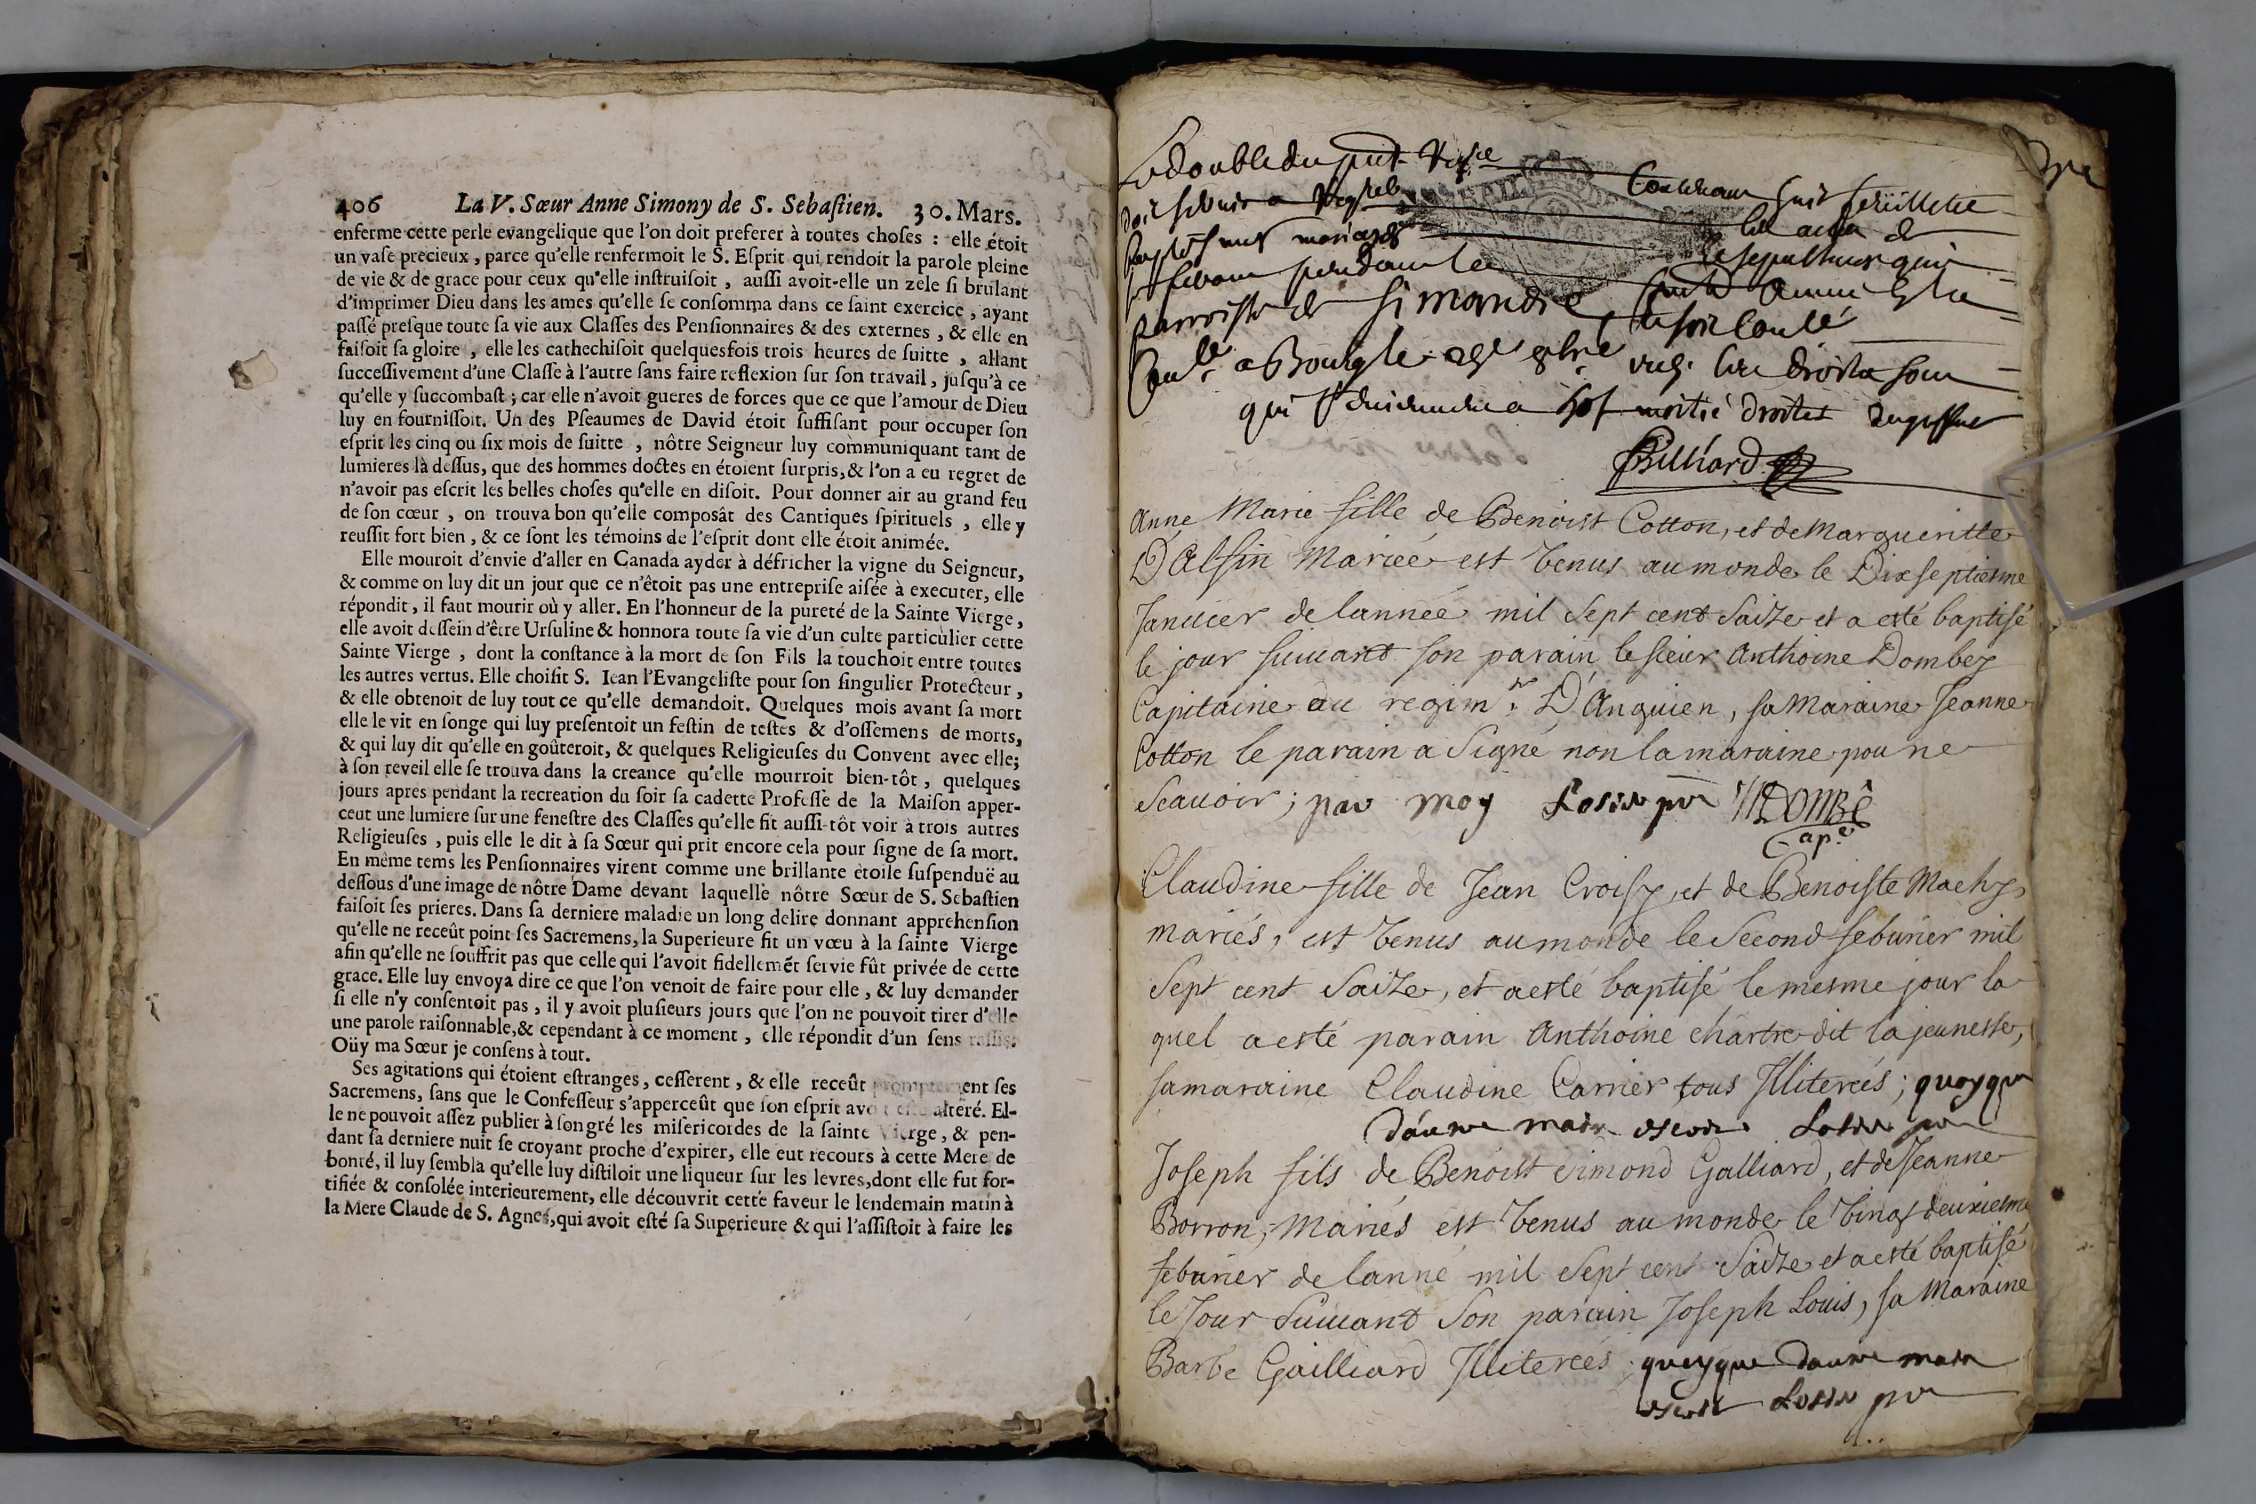 406 La V. Sœur Anne Simony de S. Sebaſtien. 30. Mars.
enferme cette perle evangelique que l'on doit preferer à toutes choſes : elle étoit
un vaſe precieux, parce qu'elle renfermoit le S. Eſprit qui rendoit la parole pleine
de vie & de grace pour ceux qu'elle inſtruiſoit, auſſi avoit-elle un zele ſi brulant
d'imprimer Dieu dans les ames qu'elle ſe conſomma dans ce ſaint exercice, ayant
paſſé preſque toute ſa vie aux Claſſes des Penſionnaires & des externes, & elle en
faiſoit ſa gloire, elle les cathechiſoit quelquesfois trois heures de ſuitte, allant
ſucceſſivement d'une Claſſe à l'autre ſans faire reflexion ſur ſon travail, juſqu'à ce
qu'elle y ſuccombaſt ; car elle n'avoit gueres de forces que ce que l'amour de Dieu
luy en fourniſſoit. Un des Pſeaumes de David étoit ſuffiſant pour occuper ſon
eſprit les cinq ou ſix mois de ſuitte, nôtre Seigneur luy communiquant tant de
lumieres là deſſus, que des hommes doctes en étoient ſurpris, & l'on a eu regret de
n'avoir pas eſcrit les belles choſes qu'elle en diſoit. Pour donner air au grand feu
de ſon cœur, on trouva bon qu'elle composât des Cantiques ſpirituels, elle y
reuſſit fort bien, & ce ſont les témoins de l'eſprit dont elle étoit animée.
Elle mouroit d'envie d'aller en Canada ayder à défricher la vigne du Seigneur,
& comme on luy dit un jour que ce n'êtoit pas une entrepriſe aiſée à executer, elle
répondit, il faut mourir où y aller. En l'honneur de la pureté de la Sainte Vierge,
elle avoit deſſein d'être Urſuline & honnora toute ſa vie d'un culte particulier cette
Sainte Vierge, dont la conſtance à la mort de ſon Fils la touchoit entre toutes
les autres vertus. Elle choiſit S. Iean l'Evangeliſte pour ſon ſingulier Protecteur,
& elle obtenoit de luy tout ce qu'elle demandoit. Quelques mois avant ſa mort
elle le vit en ſonge qui luy preſentoit un feſtin de teſtes & d'oſſemens de morts,
& qui luy dit qu'elle en goûteroit, & quelques Religieuſes du Convent avec elle;
à ſon reveil elle ſe trouva dans la creance qu'elle mourroit bien-tôt, quelques
jours apres pendant la recreation du ſoir ſa cadette Profeſſe de la Maiſon apper-
ceut une lumiere ſur une feneſtre des Claſſes qu'elle fit auſſi-tôt voir à trois autres
Religieuſes, puis elle le dit à ſa Sœur qui prit encore cela pour ſigne de ſa mort.
En même tems les Penſionnaires virent comme une brillante étoile ſuſpenduë au
deſſous d'une image de nôtre Dame devant laquelle nôtre Sœur de S. Sebaſtien
faiſoit ſes prieres. Dans ſa derniere maladie un long delire donnant apprehenſion
qu'elle ne receût point ſes Sacremens, la Superieure fit un vœu à la ſainte Vierge
afin qu'elle ne ſouffrit pas que celle qui l'avoit fidellemẽt ſervie fût privée de cette
grace. Elle luy envoya dire ce que l'on venoit de faire pour elle, & luy demander
ſi elle n'y conſentoit pas, il y avoit pluſieurs jours que l'on ne pouvoit tirer d'elle
une parole raiſonnable, & cependant à ce moment, elle répondit d'un ſens raſſis.
Oüy ma Sœur je conſens à tout.
Ses agitations qui étoient eſtranges, ceſſerent, & elle receût promptement ſes
Sacremens, ſans que le Confeſſeur s'apperceût que ſon eſprit avoit eſté alteré. El-
le ne pouvoit aſſez publier à ſon gré les miſericordes de la ſainte Vierge, & pen-
dant ſa derniere nuit ſe croyant proche d'expirer, elle eut recours à cette Mere de
bonté, il luy ſembla qu'elle luy diſtiloit une liqueur ſur les levres, dont elle fut for-
tifiée & conſolée interieurement, elle découvrit cette faveur le lendemain matin à
la Mere Claude de S. Agnes, qui avoit eſté ſa Superieure & qui l'aſſiſtoit à faire les
Le double du pnt Regre Contenant huit feuilletz
les actes de
mariages de sepultures qui
se feront pendant la Année En la
parroisse de Simandre
a Bourg le les droitz sont
qui moitié droitz
Billiard
Anne Marie fille de Benoist Cotton, et de Margueritte
D'Alsin Mariée est Venus au monde le Dixseptiesme
Januier de lannée mil Sept cent Saize et a esté baptisé
le jour suiuant son parain le sieur Anthoine Dombey
Capitaine du regimt. D'Anguien, sa Maraine Jeanne
Cotton le parain a Signé non la maraine pour ne
Scauoir ; par moy Losier pre DOMBÊ
Cape
Claudine fille de Jean Croisy, et de Benoiste Maehy
mariés, est Venus au monde le Second febürier mil
Sept cent Saize, et a esté baptisé le mesme jour la
quel a esté parain Anthoine Chartre dit la jeunesse,
sa maraine Claudine Carrier tous Jlliterés ; quoyque
dáune main escrit Losier pre
Joseph fils de Benoist Simond Galliard, et de Jeanne
Borron, Mariés est Venus au monde le Vingt deuxiesme
febürier de lanné mil Sept cent Saize et a esté baptisé
le Jour Suiuant Son parain Joseph Louis, sa Maraine
Barbe Gailliard Jlliterés ; quoyque daune main
escrit Losier pre